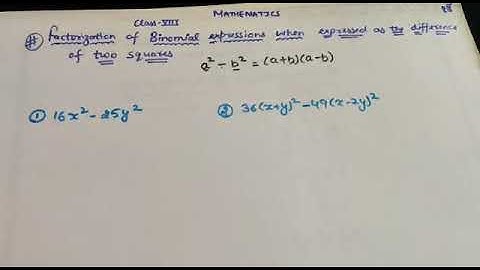 Class-VIII MATHEMATICS
# Factorization of Binomial expressions when expressed as the difference
of two squares a² - b² = (a+b)(a-b)
① 16x² - 25y² ② 36(x+y)² - 49(x-2y)²